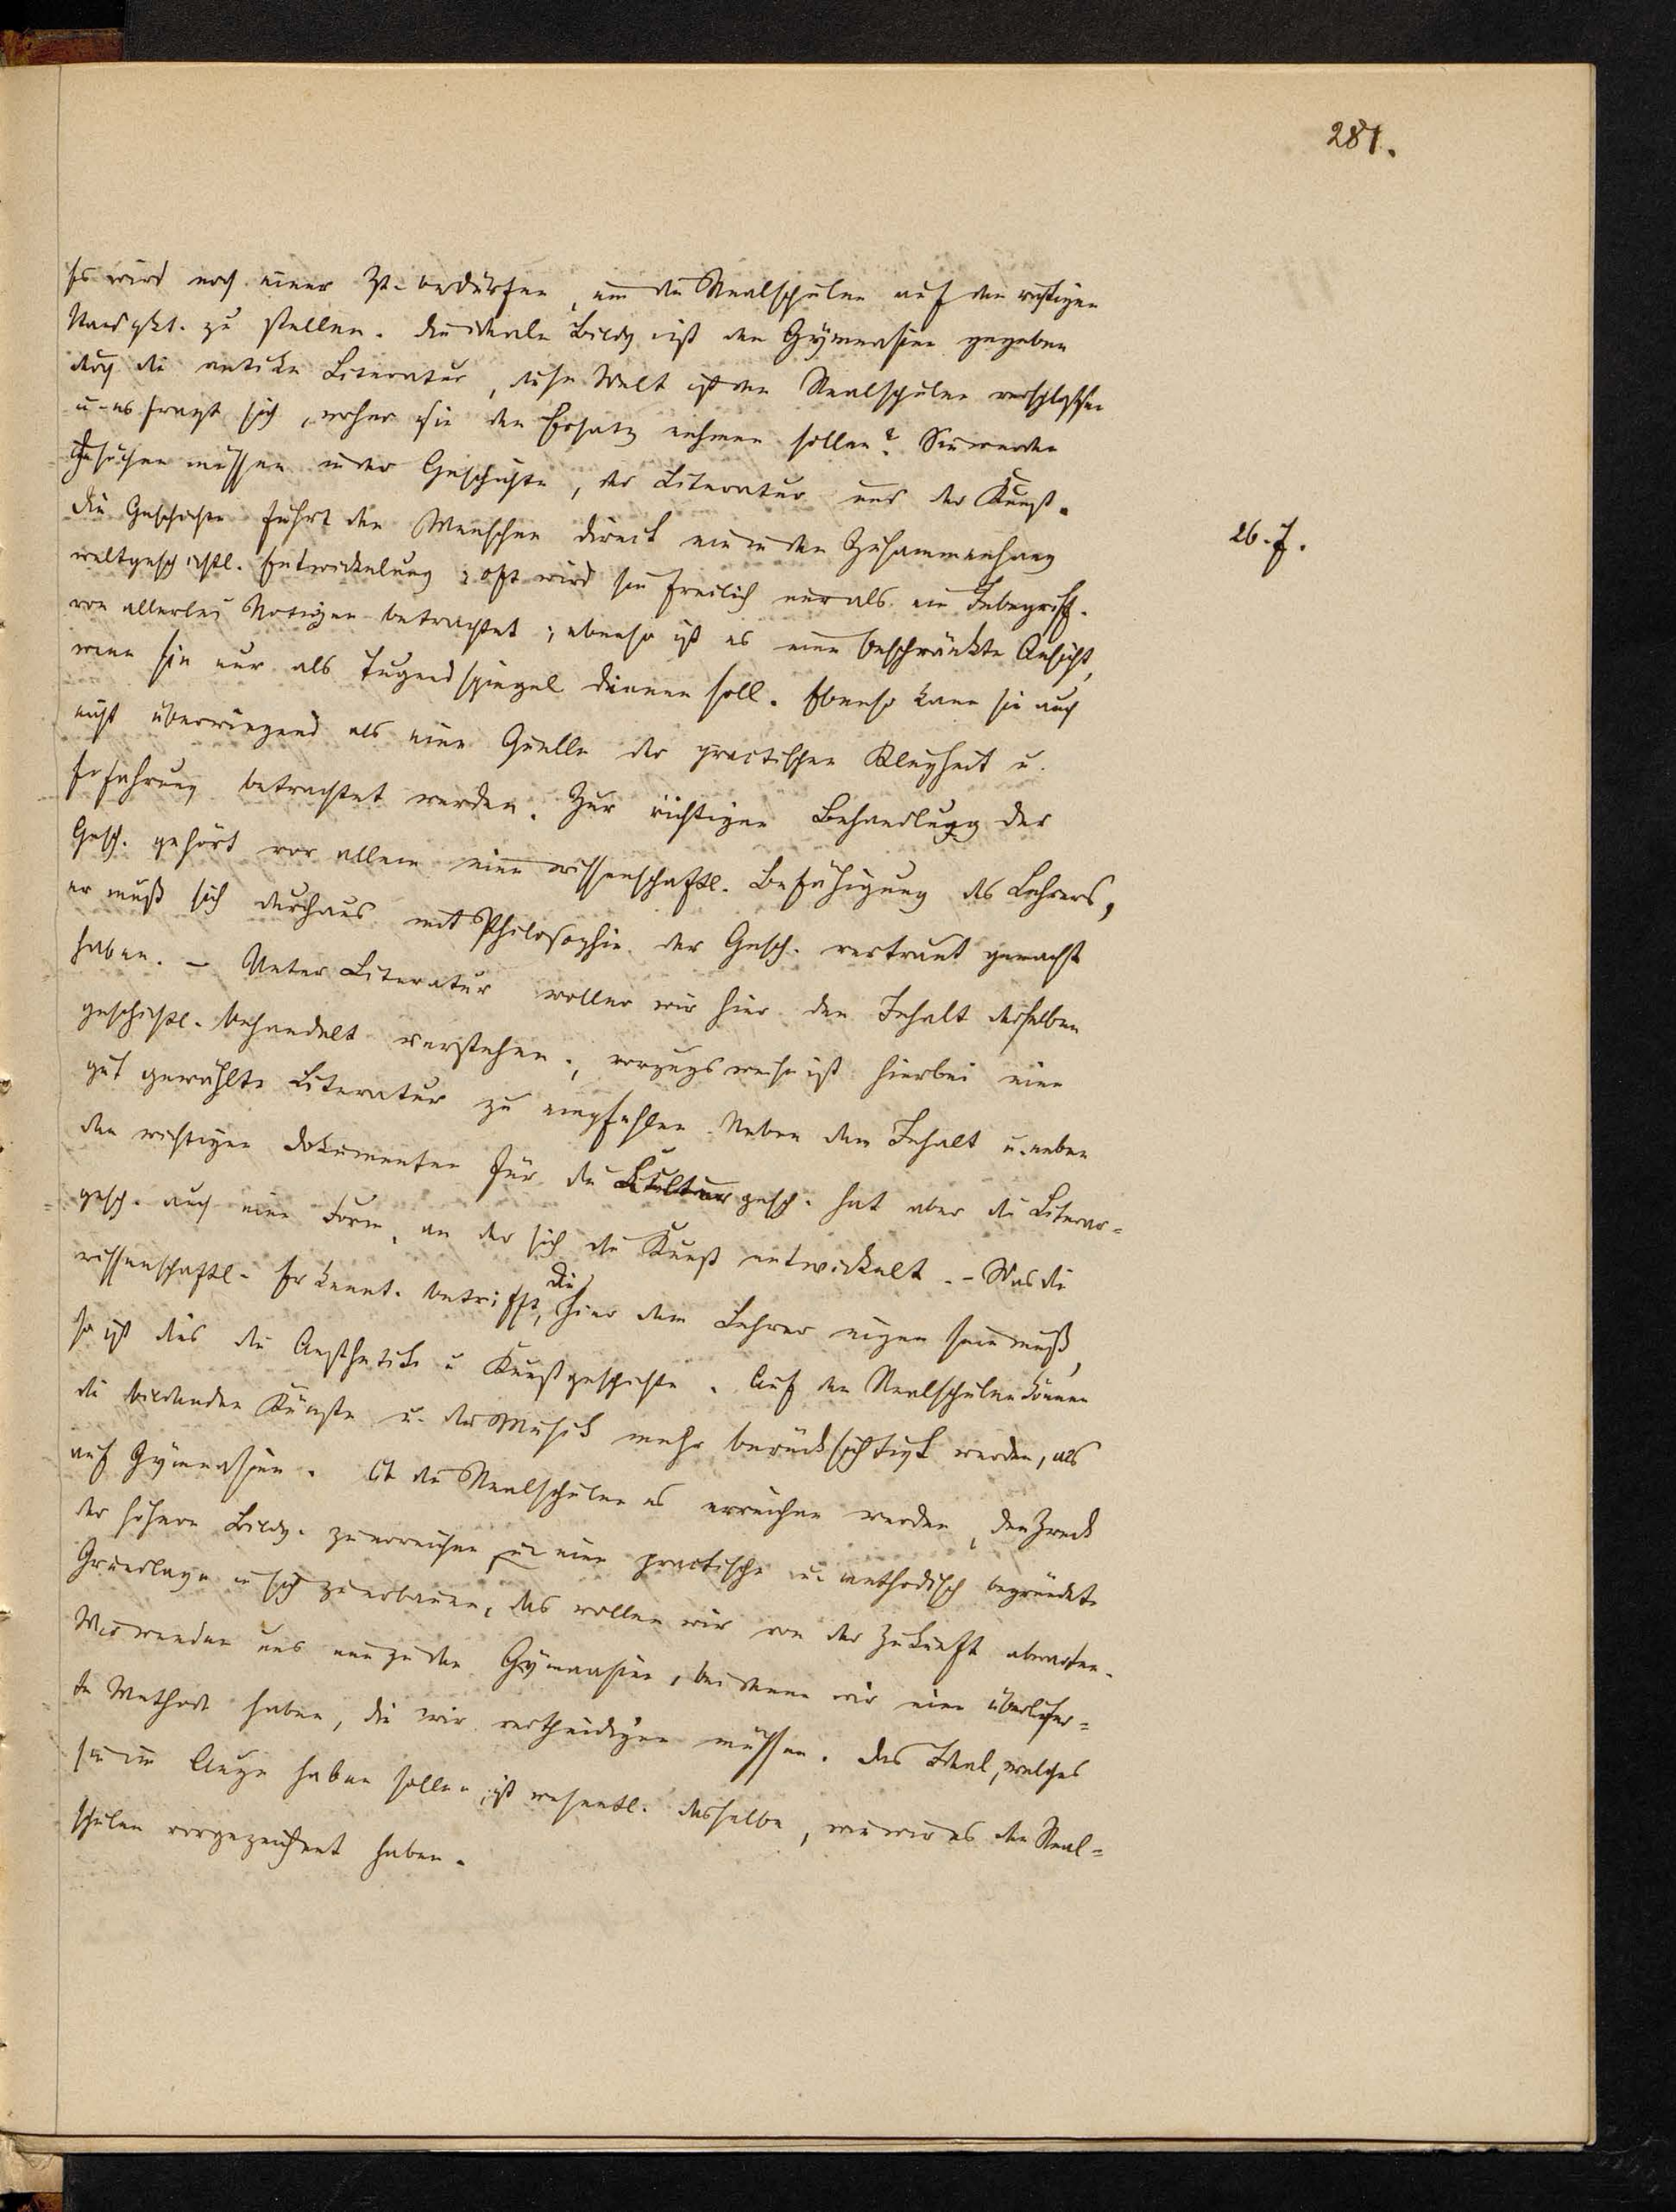 281.
Es wird noch einer Zt. bedürfen, um die Realschulen auf den richtigen
Standpkt. zu stellen. Die ideale Bildg ist den Gymnasien gegeben
durch die antike Literatur, diese Welt ist den Realschulen verschlossen
u. es fragt sich, woher sie den Ersatz nehmen sollen? Sie werden
suchen müssen in der Geschichte, der Literatur und der Kunst.
Die Geschichte führt den Menschen direct ein in den Zusammenhang
26. J.
weltgeschichtl. Entwickelung; oft wird sie freilich nur als ein Inbegriff
von allerlei Notizen betrachtet; ebenso ist es eine beschränkte Ansicht,
wenn sie nur als Tugendspiegel dienen soll. Ebenso kann sie auch
nicht überwiegend als eine Quelle der practischen Klugheit u.
Erfahrung betrachtet werden. Zur richtigen Behandlung der
Gesch. gehört vor allem eine wissenschaftl. Befähigung des Lehrers,
er muß sich durchaus mit Philosophie der Gesch. vertraut gemacht
haben. – Unter Literatur wollen wir hier den Inhalt derselben
geschichtl. behandelt verstehen; vorzugsweise ist hierbei eine
gut gewählte Literatur zu empfehlen. Neben dem Inhalt u. neben
den wichtigen Dokumenten für die Kulturgesch. hat aber die Literar-
gesch. auch eine Form, an der sich die Kunst entwickelt. – Was die
wissenschaftl. Erkennt. betrifft, die hier dem Lehrer eigen sein muß,
so ist dies die Aesthetik u. Kunstgeschichte. Auf den Realschulen können
die bildenden Künste u. die Musik mehr berücksichtigt werden, als
auf Gymnasien. Ob die Realschulen es erreichen werden, den Zweck
der höhern Bildg. zu erreichen u. eine practische u. methodisch begründete
Grundlage in sich zu erbauen, das wollen wir von der Zukunft abwarten.
Wir wenden uns nun zu den Gymnasien, bei denen wir eine überliefer-
te Methode haben, die wir vertheidigen müssen. Das Ideal, welches
sie im Auge haben sollen, ist wesentl. dasselbe, wie wir es den Real-
schulen vorgezeichnet haben.